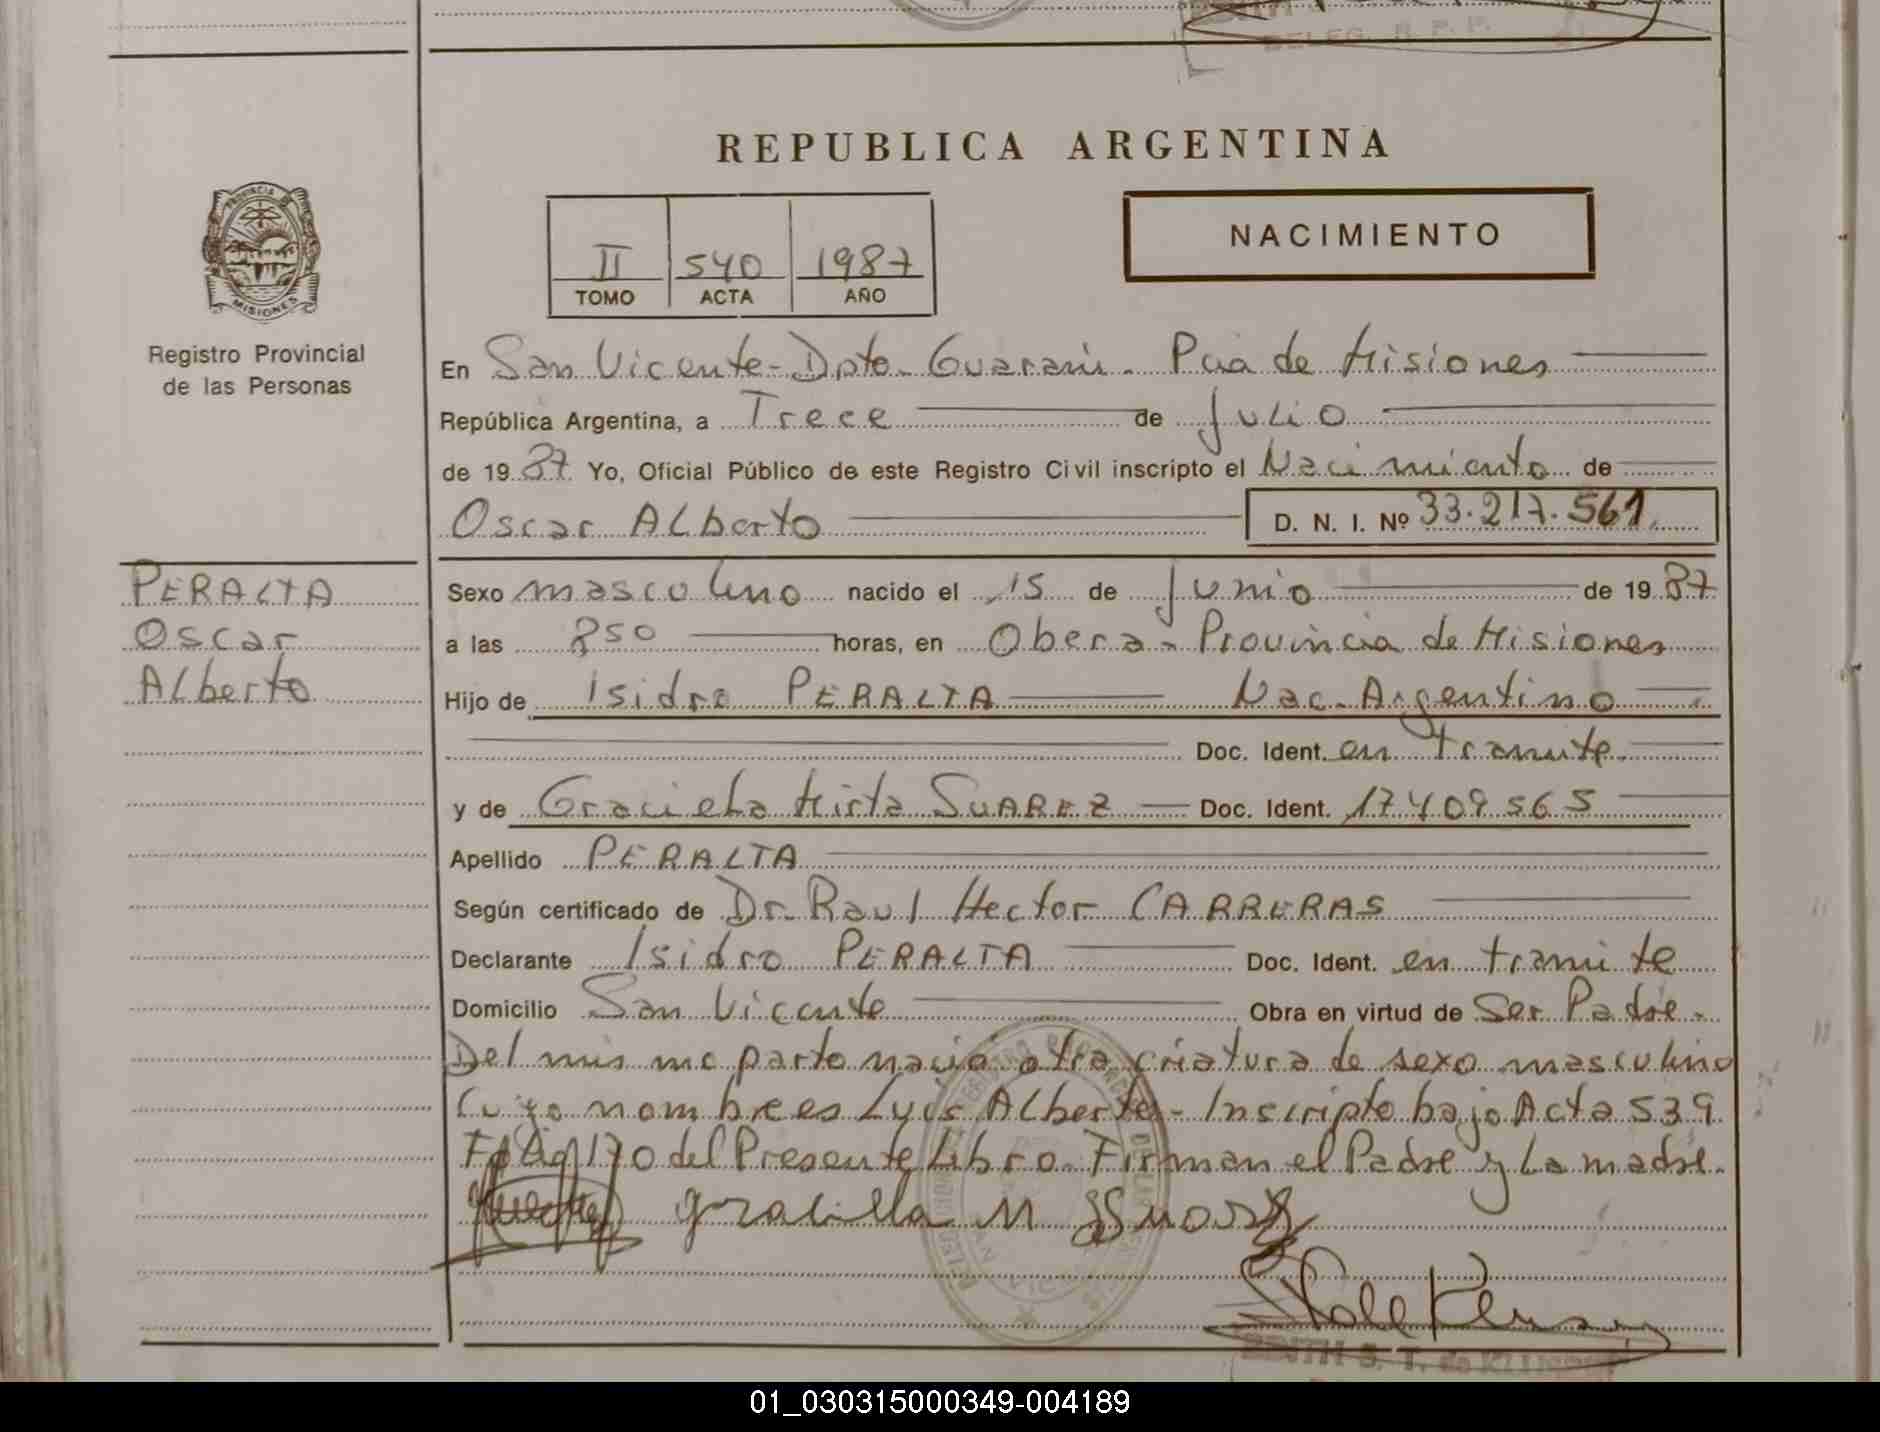 DELEG. R. P. P.
REPUBLICA ARGENTINA
NACIMIENTO
II 540 1987
TOMO ACTA AÑO
PROVINCIA
MISIONES
Registro Provincial
de las Personas
En San Vicente - Dpto. Guarani. Pcia de Misiones
República Argentina, a Trece de Julio
de 19 87 Yo, Oficial Público de este Registro Civil inscripto el Nacimiento de
Oscar Alberto D. N. I. Nº 33.217.561
PERALTA
Oscar
Alberto
Sexo masculino nacido el 15 de Junio de 19 87
a las 850 horas, en Obera - Provincia de Misiones
Hijo de Isidro PERALTA Nac. Argentino
Doc. Ident. en tramite.
y de Graciela Mirta SUAREZ Doc. Ident. 17409565
Apellido PERALTA
Según certificado de Dr. Raul Hector CARRERAS
Declarante Isidro PERALTA Doc. Ident. en tramite
Domicilio San Vicente Obra en virtud de Ser Padre.
Del mismo parto nació otra criatura de sexo masculino
Cuyo nombre es Luis Alberto - Inscripto bajo Acta 539
Folio 170 del Presente Libro. Firman el Padre y La madre.
EDITH S. T. de
01_030315000349-004189